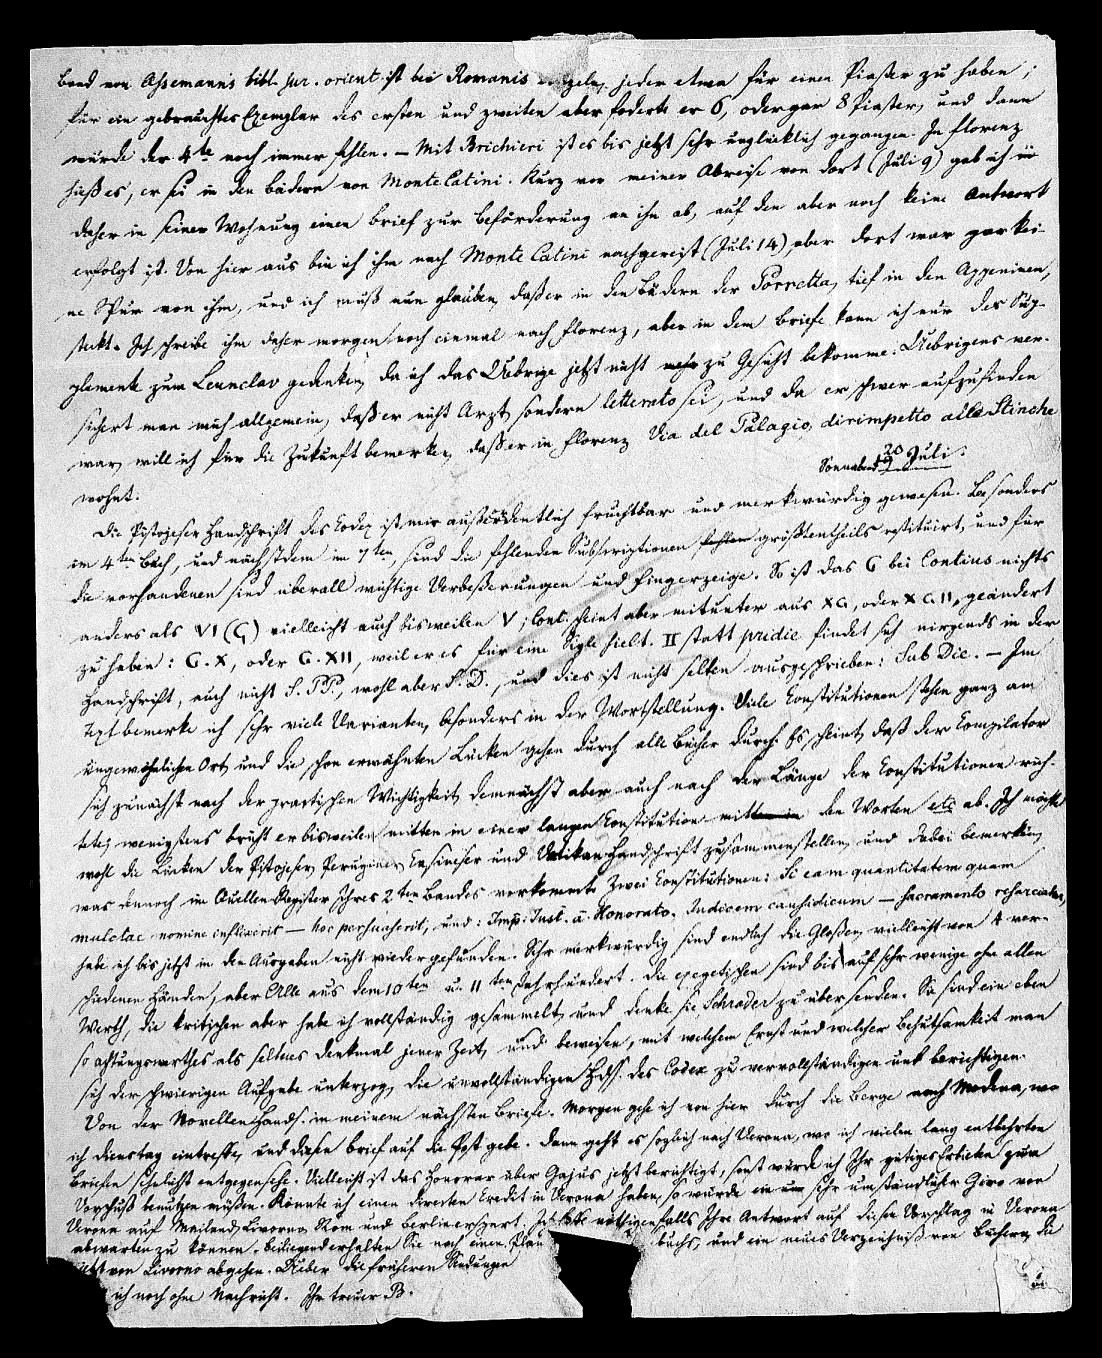 Band von Assemanni bibl. jur. orient. ist bei Romanis einzeln, jeder etwa für einen Piaster zu haben;
für ein gebrauchtes Exemplar des ersten und zweiten aber foderte er 6, oder gar 8 Piaster, und dann
würde der 4te noch immer fehlen. – Mit Brichieri ist es bis jetzt sehr unglücklich gegangen. In Florenz
hieß es, er sei in den Bädern von Monte Catini. Kurz vor meiner Abreise von dort (Juli 9) gab ich
daher in seiner Wohnung einen Brief zur Beförderung an ihn ab, auf den aber noch keine Antwort
erfolgt ist. Von hier aus bin ich ihm nach Monte Catini nachgereist (Juli 14), aber dort war gar kei-
ne Spur von ihm, und ich muß nun glauben, daß er in den Bädern der Porretta, tief in den Appeninen,
steckt. Ich schreibe ihm daher morgen noch einmal nach Florenz, aber in dem Briefe kann ich nur des Sup-
plements zum Leunclav gedenken, da ich das Uebrige jetzt nicht mehr zu Gesicht bekomme. Uebrigens ver-
sichert man mich allgemein, daß er nicht Arzt, sondern letterato sei, und da er schwer aufzufinden
war, will ich für die Zukunft bemerken, daß er in Florenz Via del Palagio, dirimpetto alle Stinche
wohnt.
Sonnabend 20 Juli.
Die Pistojeser Handschrift des Codex ist mir außerordentlich fruchtbar und merkwürdig gewesen. Besonders
im 4ten Buch, und nächstdem im 7ten, sind die fehlenden Subscriptionen größtentheils restituirt, und für
die vorhandenen sind überall wichtige Verbeßerungen und Fingerzeige. So ist das G bei Contius nichts
anders als VI (G) vielleicht auch bisweilen V; Cont. scheint aber mitunter aus XG, oder XGII, geändert
zu haben: G. X, oder G. XII, weil er es für eine Sigle hielt. II statt pridie findet sich nirgends in der
Handschrift, auch nicht S. PP., wohl aber S. D., und dies ist nicht selten ausgeschrieben: Sub Die. – Im
Text bemerke ich sehr viele Varianten, besonders in der Wortstellung. Viele Constitutionen stehen ganz am
ungewöhnlichen Ort, und die schon erwähnten Lücken gehen durch alle Bücher durch. Es scheint, daß der Compilator
sich zunächst nach der practischen Wichtigkeit, demnächst aber auch nach der Länge der Constitutionen rich-
tete, wenigstens bricht er bisweilen mitten in einer langen Constitution mitten in den Worten etc ab. Ich möchte
wohl die Lücken der Pistojeser, Peruginer und Vatikan. Handschrift zusammenstellen, und dabei bemerken,
was dennoch im Quellen-Register Ihres 2ten Bandes vorkommt. Zwei Constitutionen: Si eam quantitatem quam
mulctae nomine inflixerit – hoc perhaserit, und: Imp. Iust. a. Honorato. Iudicem causidicum – sacramento resarciatur,
habe ich bis jetzt in den Ausgaben nicht wieder gefunden. Sehr merkwürdig sind endlich die Gloßen, vielleicht von 4 ver-
schiedenen Händen, aber Alle aus dem 10ten u. 11ten Jahrhundert. Die exegetischen sind bis auf sehr wenige ohne allen
Werth, die kritischen aber habe ich vollständig gesammelt, und denke sie Schrader zu übersenden. Sie sind ein eben
so achtungswerthes als seltnes Denkmal jener Zeit, und beweisen, mit welchem Ernst und welcher Behutsamkeit man
sich der schwierigen Aufgabe unterzog, die unvollständigen Hds. des Codex zu vervollständigen und berichtigen.
Von der Novellen Hands. in meinem nächsten Briefe. Morgen gehe ich von hier durch die Berge nach Modena, wo
ich Dienstag eintreffe, und diesen Brief auf die Post gebe. Dann geht es sogleich nach Verona, wo ich vielen lang entbehrten
Briefen sehnlichst entgegensehe. Vielleicht ist das Honorar über Gajus jetzt berichtigt, sonst würde ich Ihr gütiges Erbieten zum
Vorschuß benutzen müßen. Könnte ich einen directen Credit in Verona haben, so würde ein sehr umständlicher Giro von
Verona auf Mailand, Livorno, Rom und Berlin erspart. Ich hoffe nöthigenfalls Ihre Antwort auf diesen Vorschlag in Verona
abwarten zu können. Beiliegend erhalten Sie noch einen buchs, und ein neues Verzeichniß von Büchern, die
jetzt von Livorno abgehen. Ueber die früheren Sendungen
ich noch ohne Nachricht. Ihr treuer B.